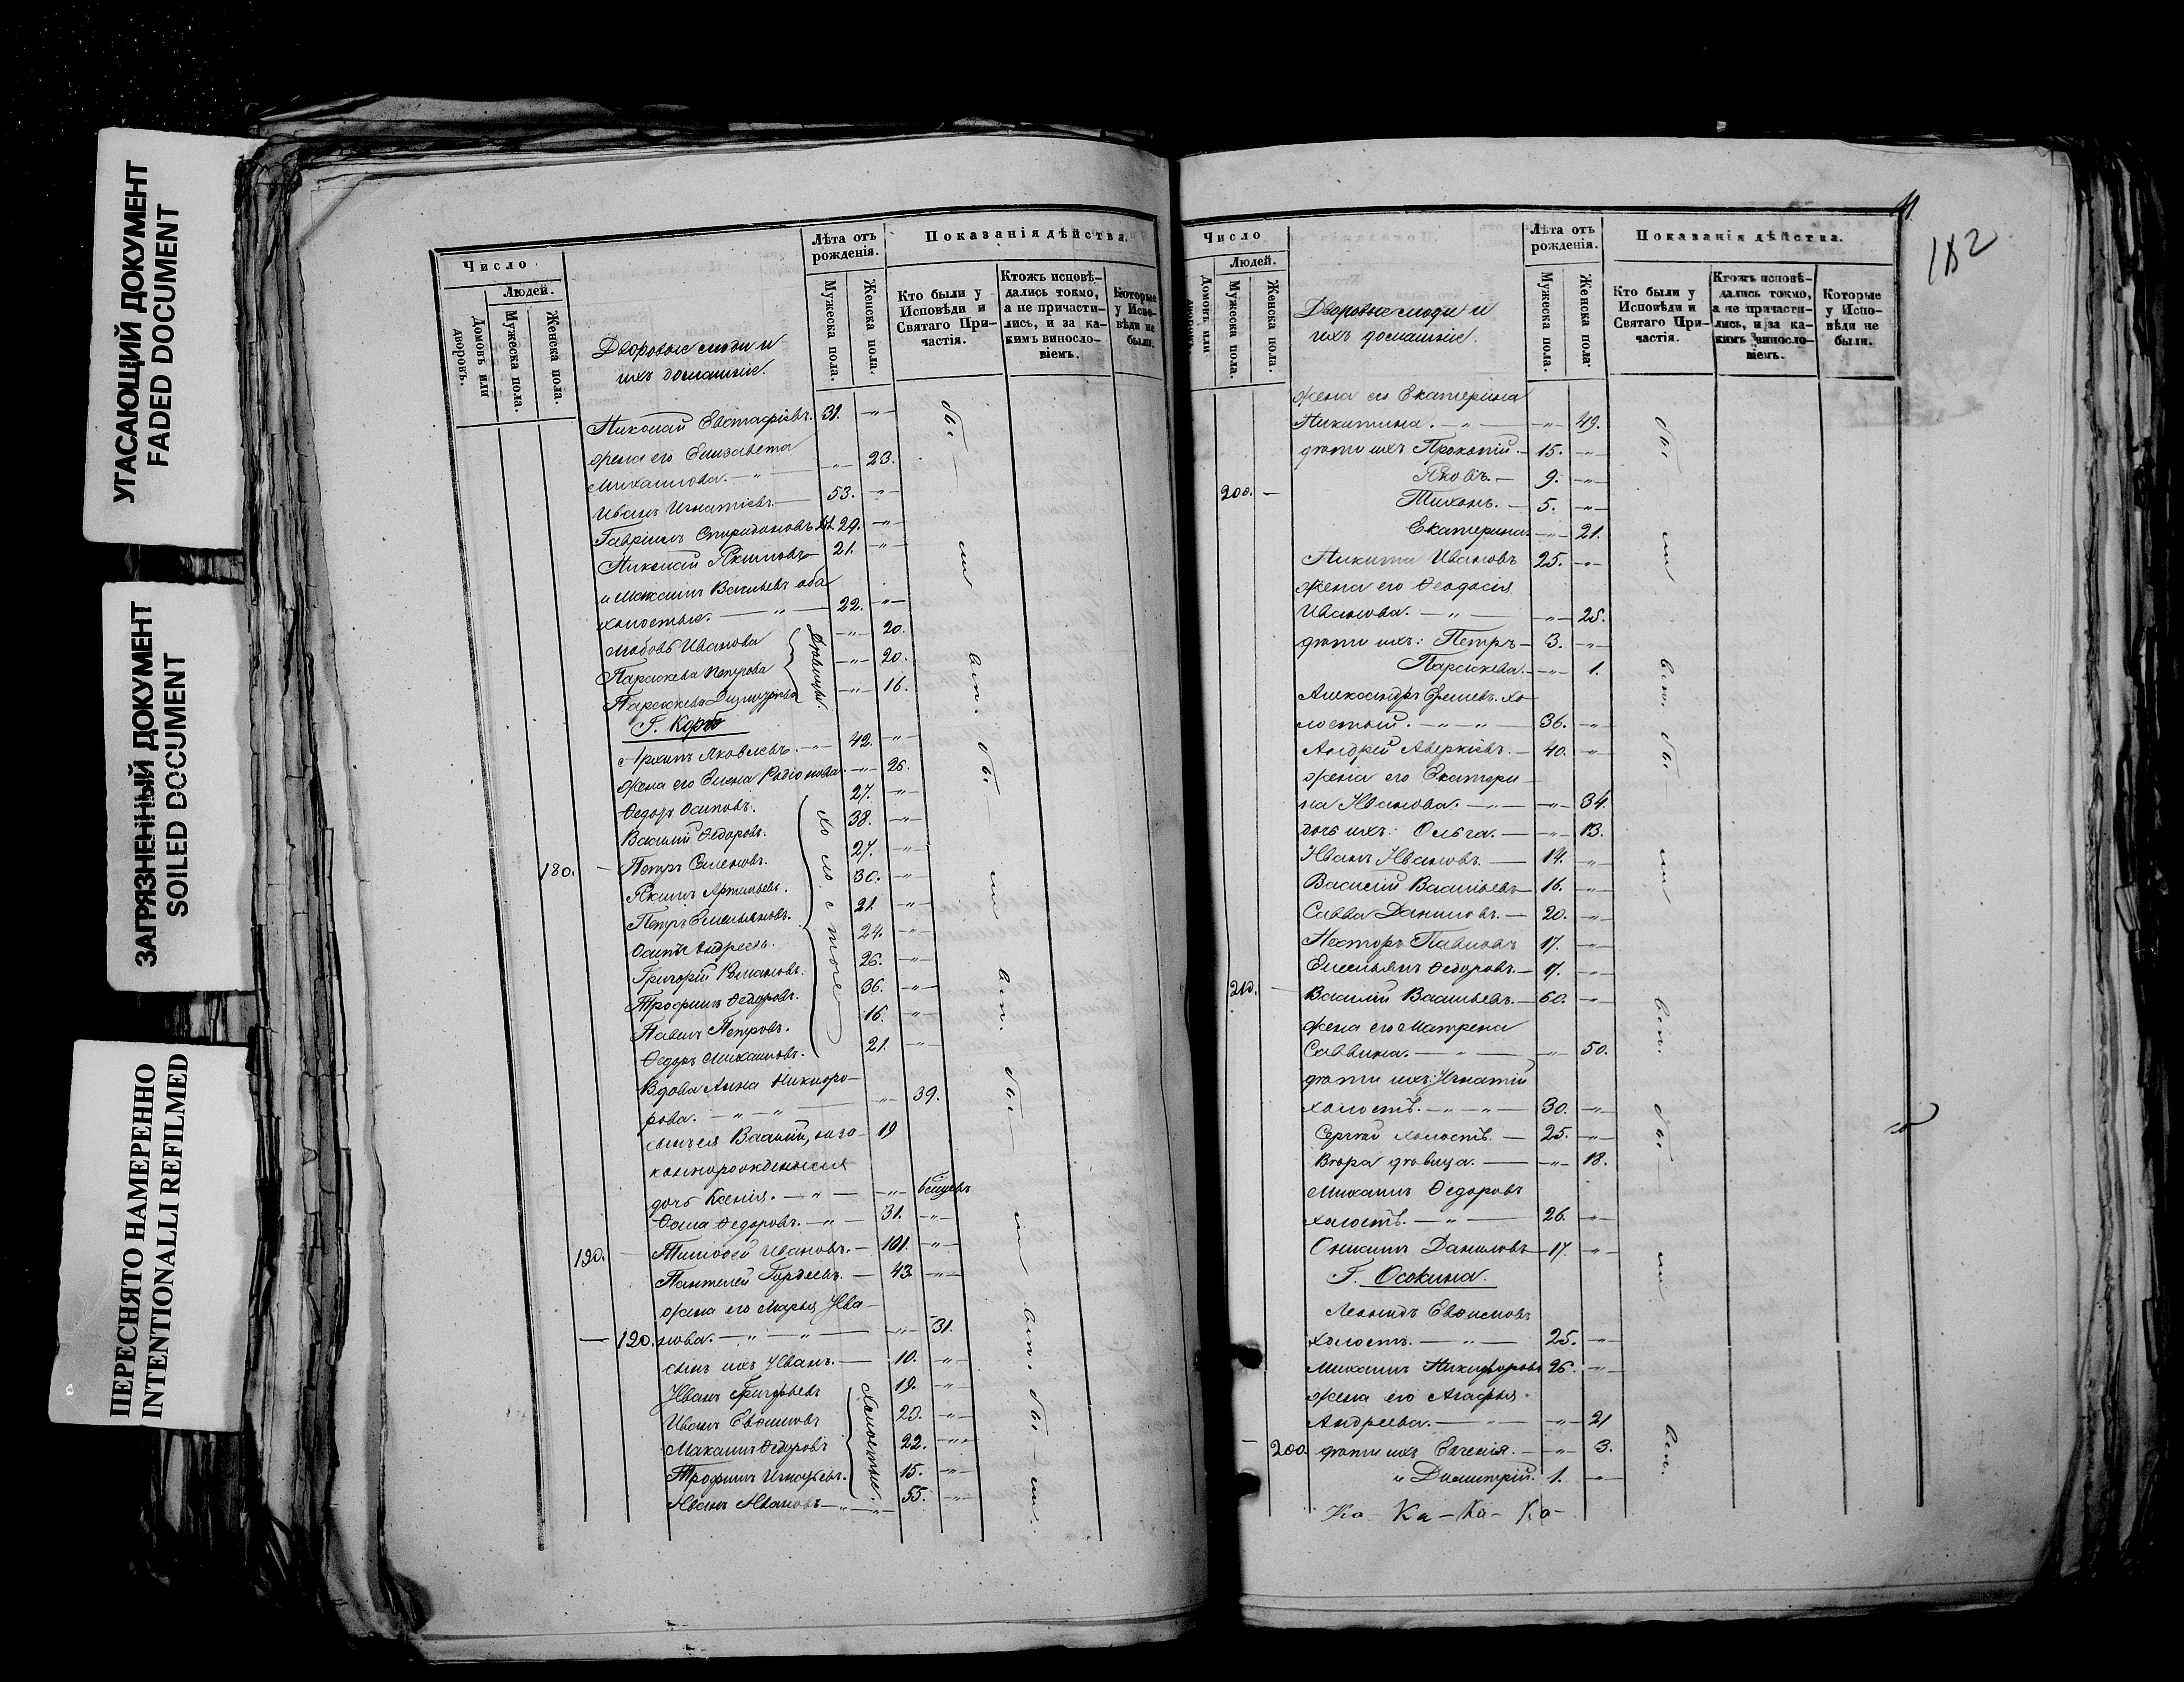 УГАСАЮЩИЙ ДОКУМЕНТ
FADED DOCUMENT
ЗАГРЯЗНЕННЫЙ ДОКУМЕНТ
SOILED DOCUMENT
ПЕРЕСНЯТО НАМЕРЕННО
INTENTIONALLI REFILMED
Число
Людей.
Домовъ или дворовъ.
Мужеска пола.
Женска пола.
Дворовые люди и
ихъ домашніе.
Лѣта отъ рожденія.
Мужеска пола.
Женска пола.
Показанія дѣйства.
Кто были у Исповѣди и Святаго Причастія.
Ктожъ исповѣдались токмо, а не причастились, и за какимъ винословіемъ.
Которые у Исповѣди не были.
Николай Евстафіевъ. 31. —"—
жена его Елизавета
Михаилова. —"— —"— 23.
Иванъ Игнатіевъ. — 53. —"—
Гавріилъ Спиридоновъ 29. —"—
Николай Якимовъ — 21. —"—
и Максимъ Васильевъ оба
холостые. —"— 22. —"—
Любовь Иванова —"— 20.
Параскева Петрова —"— 20.
Параскева Димитріева —"— 16.
дѣвицы.
Г. Корбъ
Архипъ Яковлевъ. —"— 42. —"—
жена его Елена Родіонова. —"— 26.
Ѳедоръ Осиповъ. 27. —"—
Василій Ѳедоровъ. 38. —"—
180. — Петръ Семеновъ. 27. —"—
Якимъ Артемьевъ. 30. —"—
Петръ Емельяновъ. 21. —"—
Осипъ Андреевъ. 24. —"—
Григорій Романовъ. 26. —"—
Трофимъ Ѳедоровъ. 36. —"—
Павелъ Петровъ. 16. —"—
Ѳедоръ Михаиловъ. 21. —"—
Вдова Анна Никифо-
рова. —"—"— —"— 39.
сынъ ея Василій, неза- 19
коннорожденная
дочь Ксенія. —"— —"—
Ѳома Ѳедоровъ. —"— 31. —"—
190. — Тимоѳей Ивановъ. — 101. —"—
Пантелей Гордеевъ. — 43. —"—
жена его Марья Ива-
— 190. нова. —"—"— —"— 31.
сынъ ихъ Иванъ. — 10. —"—
Иванъ Григорьевъ 19. —"—
Иванъ Евѳимовъ 20. —"—
Максимъ Ѳедоровъ 22. —"—
Трофимъ Игнатьевъ. 15. —"—
холостые.
Иванъ Ивановъ —"—"— 55. —"—
182
Число
Людей.
Домовъ или дворовъ.
Мужеска пола.
Женска пола.
Дворовые люди и
ихъ домашніе.
Лѣта отъ рожденія.
Мужеска пола.
Женска пола.
Показанія дѣйства.
Кто были у Исповѣди и Святаго Причастія.
Ктожъ исповѣдались токмо, а не причастились, и за какимъ винословіемъ.
Которые у Исповѣди не были.
жена его Екатерина
Никитина. —"— —"— 49.
дѣти ихъ Прокопій — 15. —"—
Яковъ. — 9. —"—
200. — Тихонъ. — 5. —"—
Екатерина —"— 21.
Никита Ивановъ 25. —"—
жена его Ѳеодосія
Иванова. —"— —"— 25.
дѣти ихъ: Петръ — 3. —"—
Параскева. —"— 1.
Александръ хо-
лостый. —"—"— 36. —"—
Андрей Аверкіевъ. — 40. —"—
жена его Екатери-
на Иванова. —"— —"— 34.
дочь ихъ: Ольга. — —"— 13.
Иванъ Ивановъ. — 14. —"—
Василій Васильевъ — 16. —"—
Савва Даниловъ. — 20. —"—
Несторъ Павловъ 17. —"—
Емельянъ Ѳедоровъ. — 17. —"—
210. — Василій Васильевъ. — 60. —"—
жена его Матрена
Саввина. —"— —"— 50.
дѣти ихъ: Игнатій
холостъ. —"—"— 30. —"—
Сергѣй холостъ. — 25. —"—
Вѣра дѣвица. — —"— 18.
Михаилъ Ѳедоровъ
холостъ. —"— 26. —"—
Онисимъ Даниловъ — 17. —"—
Г. Осокина.
Леонидъ Евѳимовъ
холостъ. —"— 25. —"—
Михаилъ Никифоровъ 26. —"—
жена его Агафья
Андреева. —"— —"— 21
— 200. дѣти ихъ Евгенія. — —"— 3.
и Димитрій. 1. —"—
Ка — Ка — Ка — Ка —